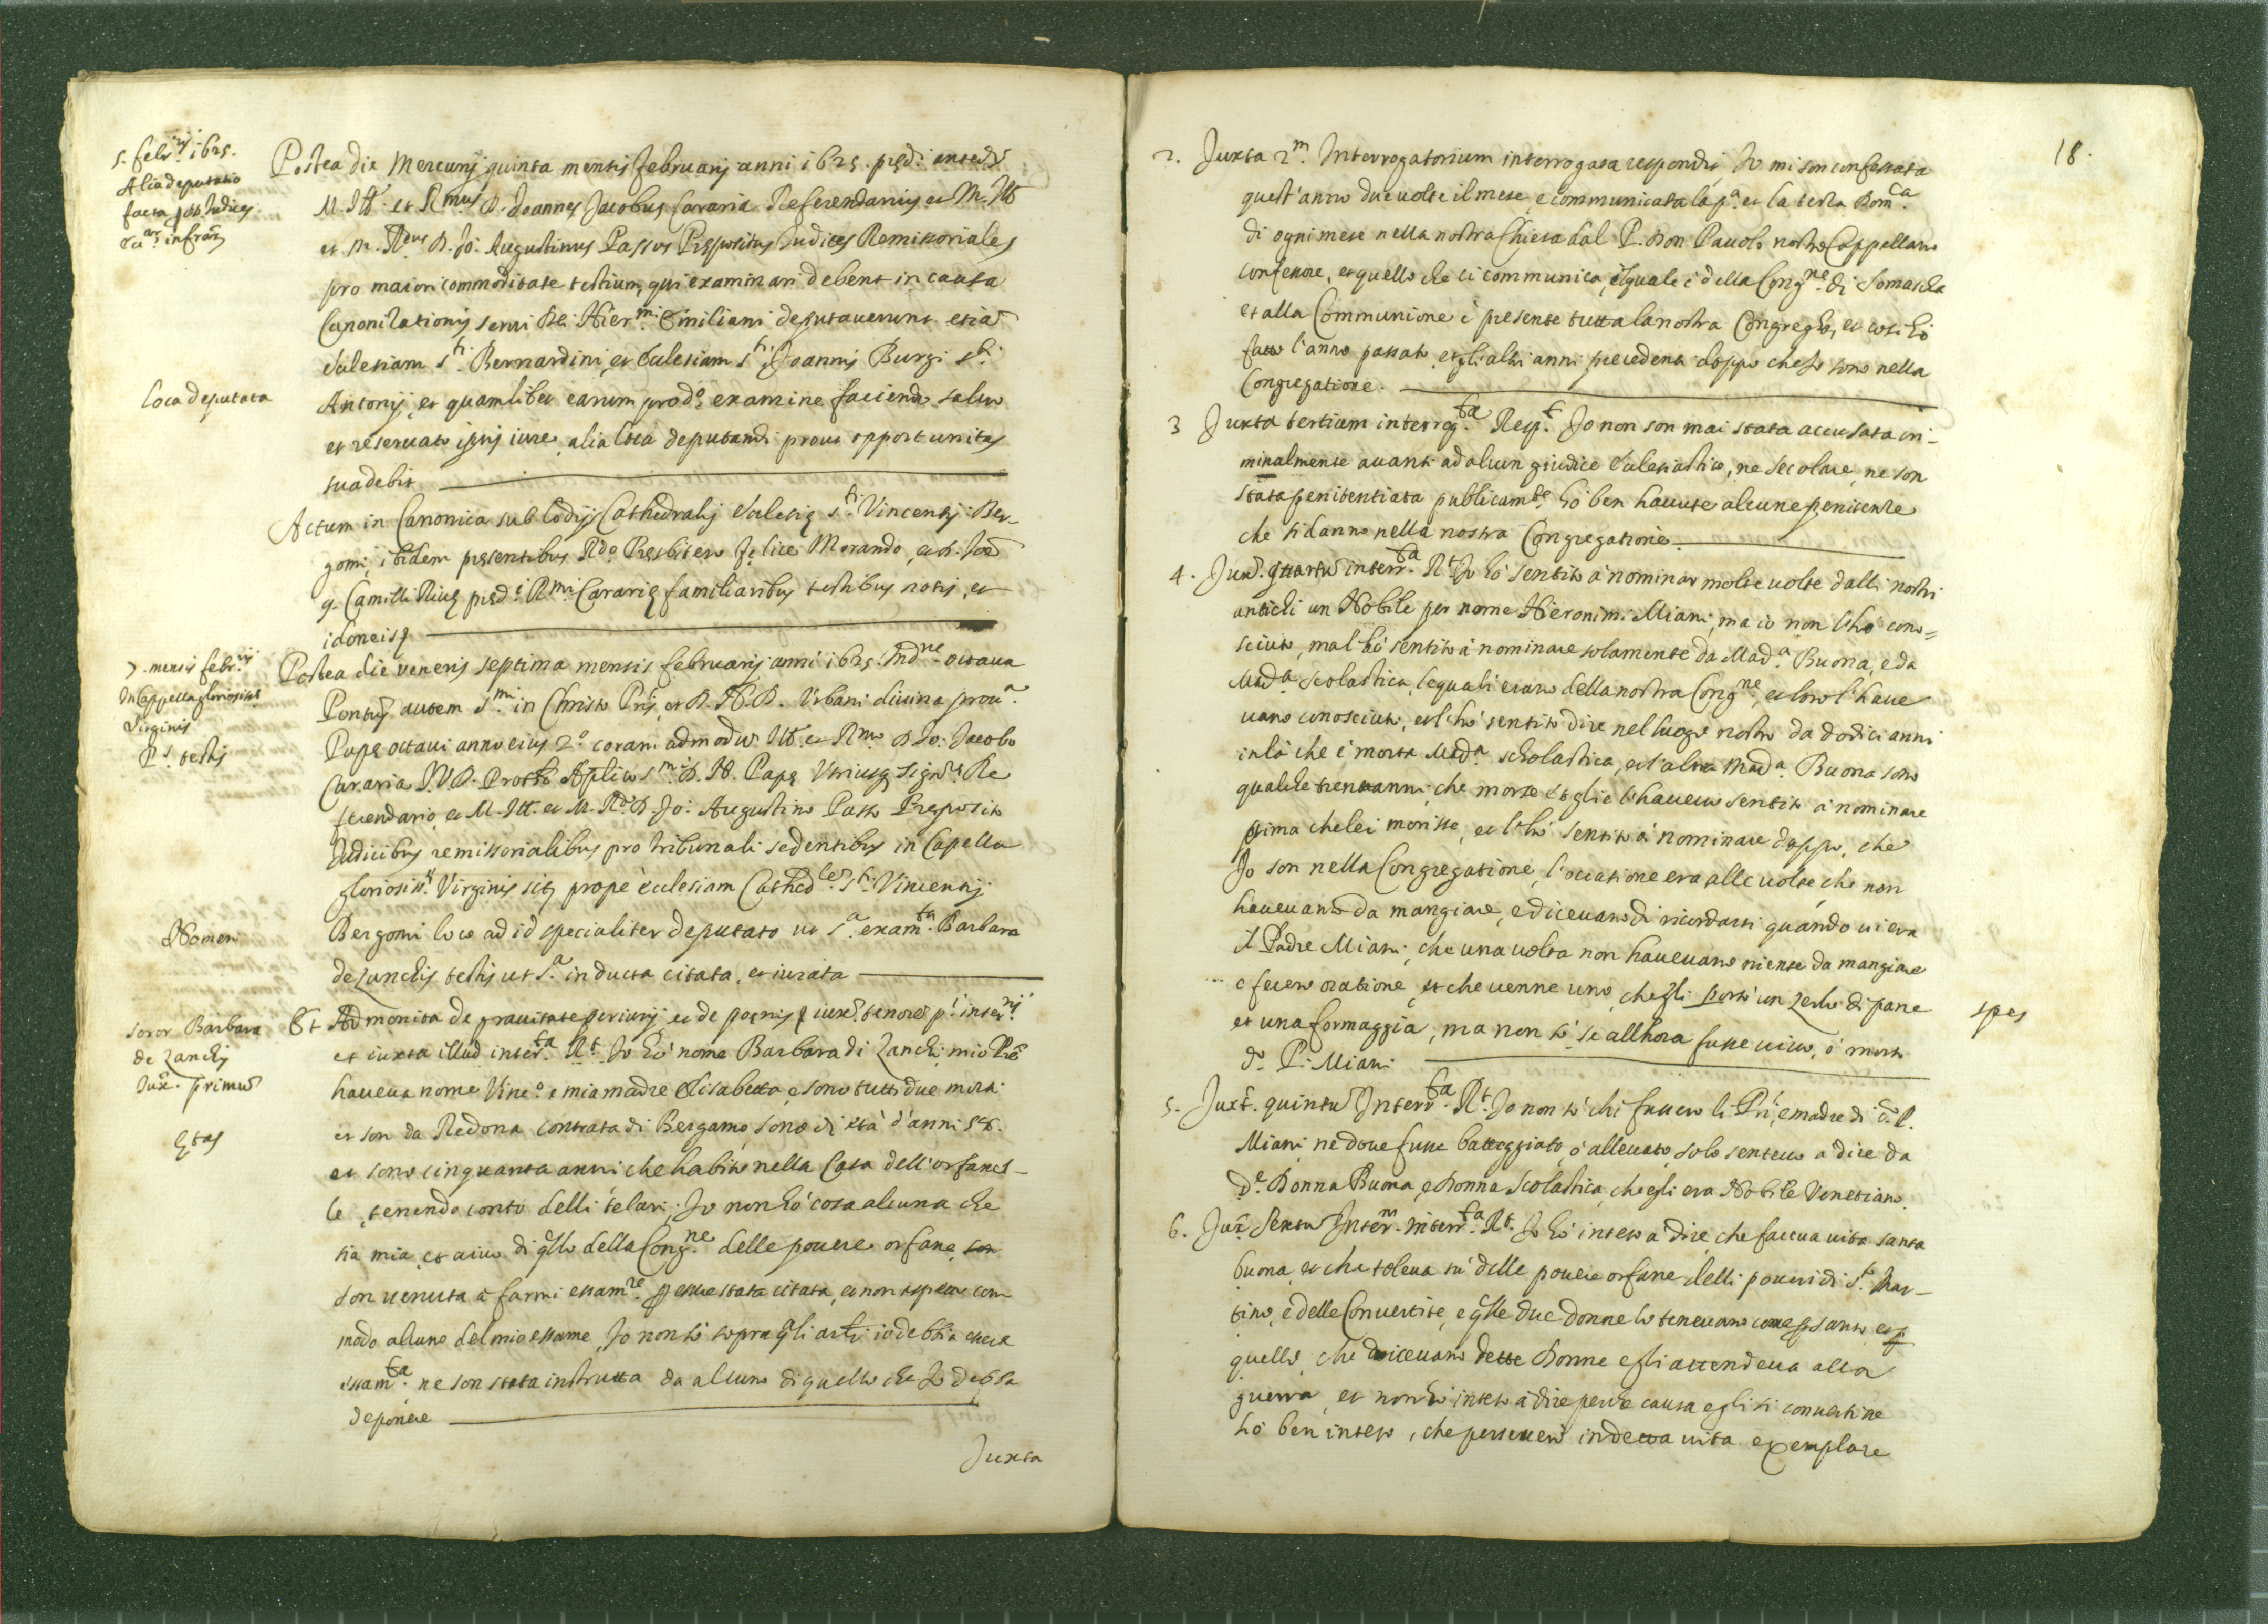 5. febr.ij 1625.
Alia deputatio
facta p DD. Judices
Postea die Mercurij quinta mensis februarij anni 1625. prędi. anted.i
M. Ill. et R.mus D. Joannes Jacobus Cararia Referendarius et M. Ill.
et M. R.dus D. Jo: Augustinus Passus Prępositus Judices Remissoriales
pro maiori commoditate testium, qui examinari debent in causa
Canonizationis serui Dei Hier.mi Emiliani deputauerunt etiā
Eclesiam S.ti Bernardini, et Eclesiam S.ti Joannis Burgi S.ti
Loca deputata
Antonij, et quamlibet earum pro d.o examine faciendo saluo
et reseruato ipsis iure, alia loca deputandi prout opportunitas
suadebit
Actum in Canonica sub Lodijs Cathedralis Eclesię S.ti Vincentij Ber-
gomi, ibidem pręsentibus R.do Pręsbitero Felice Morando, et D.
q. Camilli Riuę pręd.i R.mi Cararię familiaribus testibus notis, et
idoneis
7. mensis febr.ij
In Cappella gloriosiss.ę
Virginis
P.s testis
Postea die veneris septima mensis februarij anni 1625. Ind.ne octaua
Pontus autem S.mi in Christo Pris, et D. N. D. Vrbani diuina prou.a
Papę octaui anno eius 2.o coram admodū Ill. et R.mo D. Jo: Jacobo
Cararia I.V.D. Protho Aplico S.mi D. N. Papę Vtriusq Sign.rę Re
ferendario, et M. Ill. et M. R.do D. Jo: Augustino Passo Pręposito
Judicibus remissorialibus pro tribunali sedentibus in Capella
gloriosiss.ę Virginis sitę prope ecclesiam Cathed.le S.ti Vincentij
Nomen
Bergomi loco ad id specialiter deputato ut S.a exam.ta Barbara
de Zanchis testis ut S.a inducta citata, et iurata
Soror Barbara
de Zanchis
Iux. primū
Et Admonita de grauitate periurij et de poenis, iux. tenore p.i inter.rij
et iuxta illud inter.ta R.t Io hò nome Barbara di Zanchi, mio Prē
haueua nome Vinc.o e mia madre Elisabetta, e sono tutti due morti
et son da Redona contrata di Bergamo, sono di età d'anni 58.
Ętas
et sono cinquanta anni che habito nella Casa dell'orfanel-
le, tenendo conto delli telari; Io non hò cosa alcuna che
sia mia, et uiuo di q̄llo della Cong.ne delle pouere orfane, son
son uenuta à farmi essam.re p esser stata citata, et non aspetto com
modo alcuno del mio essame, Io non sò sopra q̄li arti. io debbia esser
essam.ta ne son stata instrutta da alcuno di quello che Io debba
deponere
Juxta
18.
2. Juxta 2.m Interrogatorium interrogata respondit, Io mi son confessata
quest'anno due uolte il mese, e communicata la p.a et la terza Dom.ca
di ogni mese nella nostra Chiesa dal P. Don Pauolo nostro Cappellano
confessore, et quello che ci communica, il quale è della Cong.ne di Somascha
et alla Communione è presente tutta la nostra Congreg.ne, et cosi hò
fatto l'anno passato, et gli altri anni precedenti doppo che Io sono nella
Congregatione.
3 Juxta tertium interrog.ta Resp.t Io non son mai stata accusata cri-
minalmente auanti ad alcun giudice Eclesiastico, ne secolare, ne son
stata penitentiata publicam.te hò ben hauute alcune penitenze
che si danno nella nostra Congregatione.
4. Jux. quartū interr.ta R.t Io hò sentito à nominar molte uolte dalli nostri
antichi un Nobile per nome Hieronimi Miani, ma io non l'hò cono=
sciuto, ma l'hò sentito à nominare solamente da Mad.a Buona, e da
Mad.a Scolastica, le quali erano della nostra Cong.ne, et loro l'haue
uano conosciuto, et l'hò sentito dire nel luogo nostro da dodici anni
in là che è morta Mad.a Scholastica, et l'altra Mad.a Buona sono
qualche trenta anni, che morse et gli e l'haueuo sentito à nominare
prima che lei morisse, et l'hò sentito à nominare doppo, che
Io son nella Congregatione, l'occasione era alle uolte che non
haueuano da mangiare, e diceuano di ricordarsi quando ui era
il Padre Miani, che una uolta non haueuano niente da mangiare
e fecero oratione, et che uenne uno, che gli portò un zerlo di pane
spes
et una formaggia, ma non sò se all'hora fusse uiuo, ò morto
d.o P. Miani
5. Juxt. quintū Interr.ta R.t Io non sò chi fussero li Pri, e madre di d.o P.
Miani, ne doue fusse battiggiato, ò alleuato, solo senteuo à dire da
d.e Donna Buona, e Donna Scolastica, che egli era Nobile Venetiano.
6. Jux. Sextū Inter.m interr.ta R.t Io hò inteso à dire, che faceua uita santa
buona, et che toleua sù delle pouere orfane delli poueri di S.to Mar-
tino, e delle Conuertite, e q̄lle due donne lo teneuano come p santo et p
quello, che diceuano dette Donne egli attendeua alla
guerra, et non hò inteso à dire per che causa egli si conuertisse
hò ben inteso, che perseuerò in detta uita exemplare